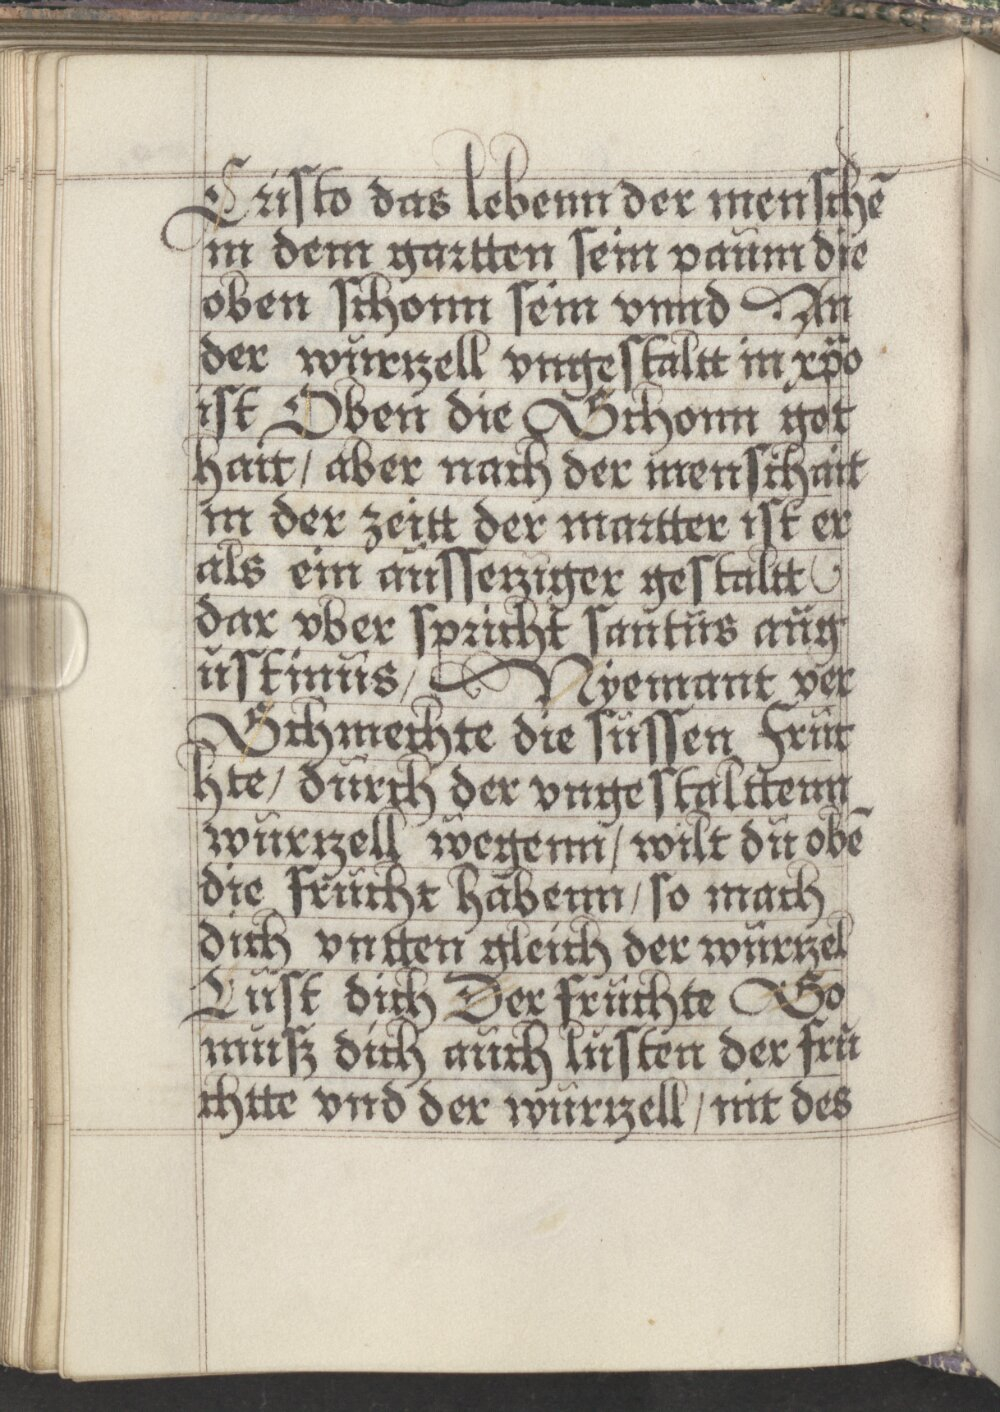 Cristo das lebenn der menschē
in dem gartten sein paŭm die
oben schonn sein vnnd An
der wŭrtzell vngestaltt in xp̄o
ist Oben die Schonn got
hait / aber nach der menschait
in der zeitt der martter ist er
als ein aŭssetziger gestaltt
dar vber spricht santŭs aŭg
ŭstinŭs / Nyemant ver
Schmechte die sŭssen frŭt
hte / dŭrch der vngestalttenn
wŭrtzell wegenn / wilt dŭ obē
die frŭcht habenn / so mach
dich vntten gleich der wŭrtzel
Lŭst dich Der frŭchte So
mŭsz dich aŭch lŭsten der frŭ
chtte vnd der wŭrtzell / nit des